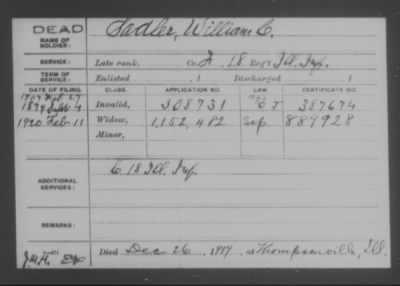 DEAD Sadler, William C.
NAME OF SOLDIER:
SERVICE: Late rank, Co. F, 18 Reg't Ill. Inf.
TERM OF SERVICE: Enlisted , 1 Discharged , 1
DATE OF FILING. CLASS. APPLICATION NO. LAW. CERTIFICATE NO.
1879 Sept 4 Invalid, 308731 387674
1920 Feb 11 Widow, 1,152,482 Sep. 889928
Minor,
ADDITIONAL SERVICES: C 18 Ill. Inf.
REMARKS:
Died Dec 26, 1919, at Thompsonville, Ill.